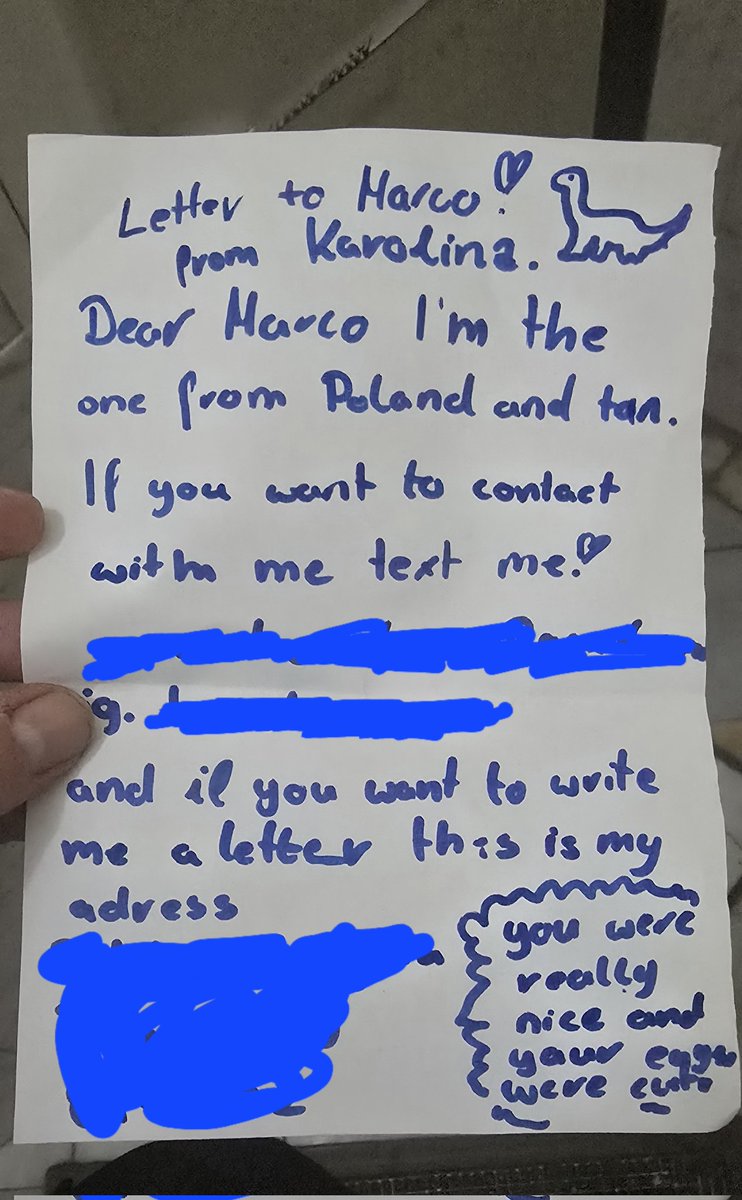 Letter to Marco!
from Karolina.
Dear Marco I'm the
one from Poland and tan.
If you want to contact
with me text me!
ig.
and if you want to write
me a letter this is my
adress
you were
really
nice and
your eggs
were cute